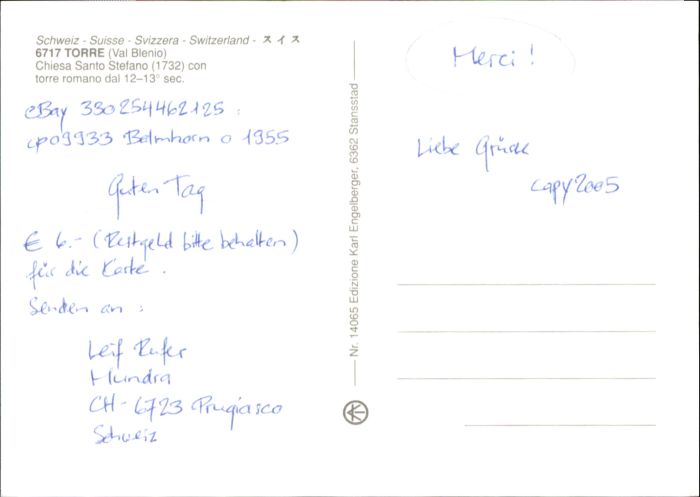 Schweiz - Suisse - Svizzera - Switzerland - スイス
6717 TORRE (Val Blenio)
Chiesa Santo Stefano (1732) con
torre romano dal 12–13° sec.
eBay 330254462125 :
cp09933 Balmhorn o 1955
Guten Tag
€ 6.- (Restgeld bitte behalten)
für die Karte.
Senden an :
Leif Rufer
CH-6723 Prugiasco
Schweiz
Nr. 14065 Edizione Karl Engelberger, 6362 Stansstad
Merci !
Liebe Grüsse
copy2005